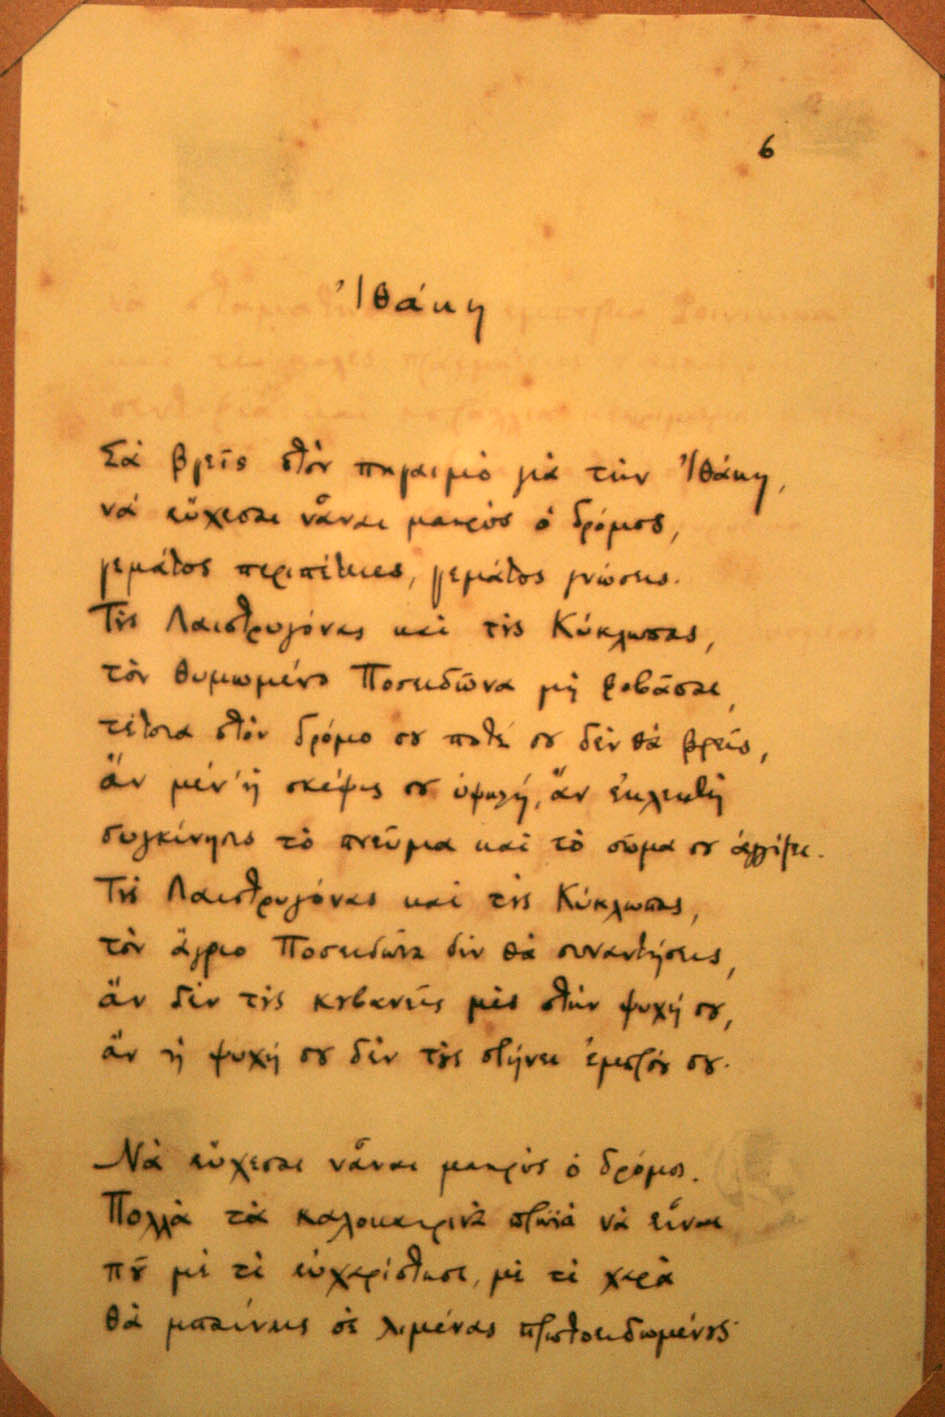 6
Ἰθάκη
Σὰ βγεῖς στὸν πηγαιμὸ γιὰ τὴν Ἰθάκη,
νὰ εὔχεσαι νἆναι μακρὺς ὁ δρόμος,
γεμάτος περιπέτειες, γεμάτος γνώσεις.
Τὶς Λαιστρυγόνας καὶ τὶς Κύκλωπας,
τὸν θυμωμένο Ποσειδῶνα μὴ φοβᾶσαι,
τέτοια στὸν δρόμο σου ποτέ σου δὲν θὰ βρεῖς,
ἂν μέν' ἡ σκέψις σου ὑψηλή, ἂν ἐκλεκτὴ
συγκίνησις τὸ πνεῦμα καὶ τὸ σῶμα σου ἀγγίζει.
Τὶς Λαιστρυγόνας καὶ τὶς Κύκλωπας,
τὸν ἄγριο Ποσειδῶνα δὲν θὰ συναντήσεις,
ἂν δὲν τὶς κουβανεῖς μὲς στὴν ψυχή σου,
ἂν ἡ ψυχή σου δὲν τοὺς στήνει ἐμπρός σου.
Νὰ εὔχεσαι νἆναι μακρὺς ὁ δρόμος.
Πολλὰ τὰ καλοκαιρινὰ πρωϊὰ νὰ εἶναι
ποῦ μὲ τί εὐχαρίστησι, μὲ τί χαρὰ
θὰ μπαίνεις σὲ λιμένας πρωτοειδωμένους·